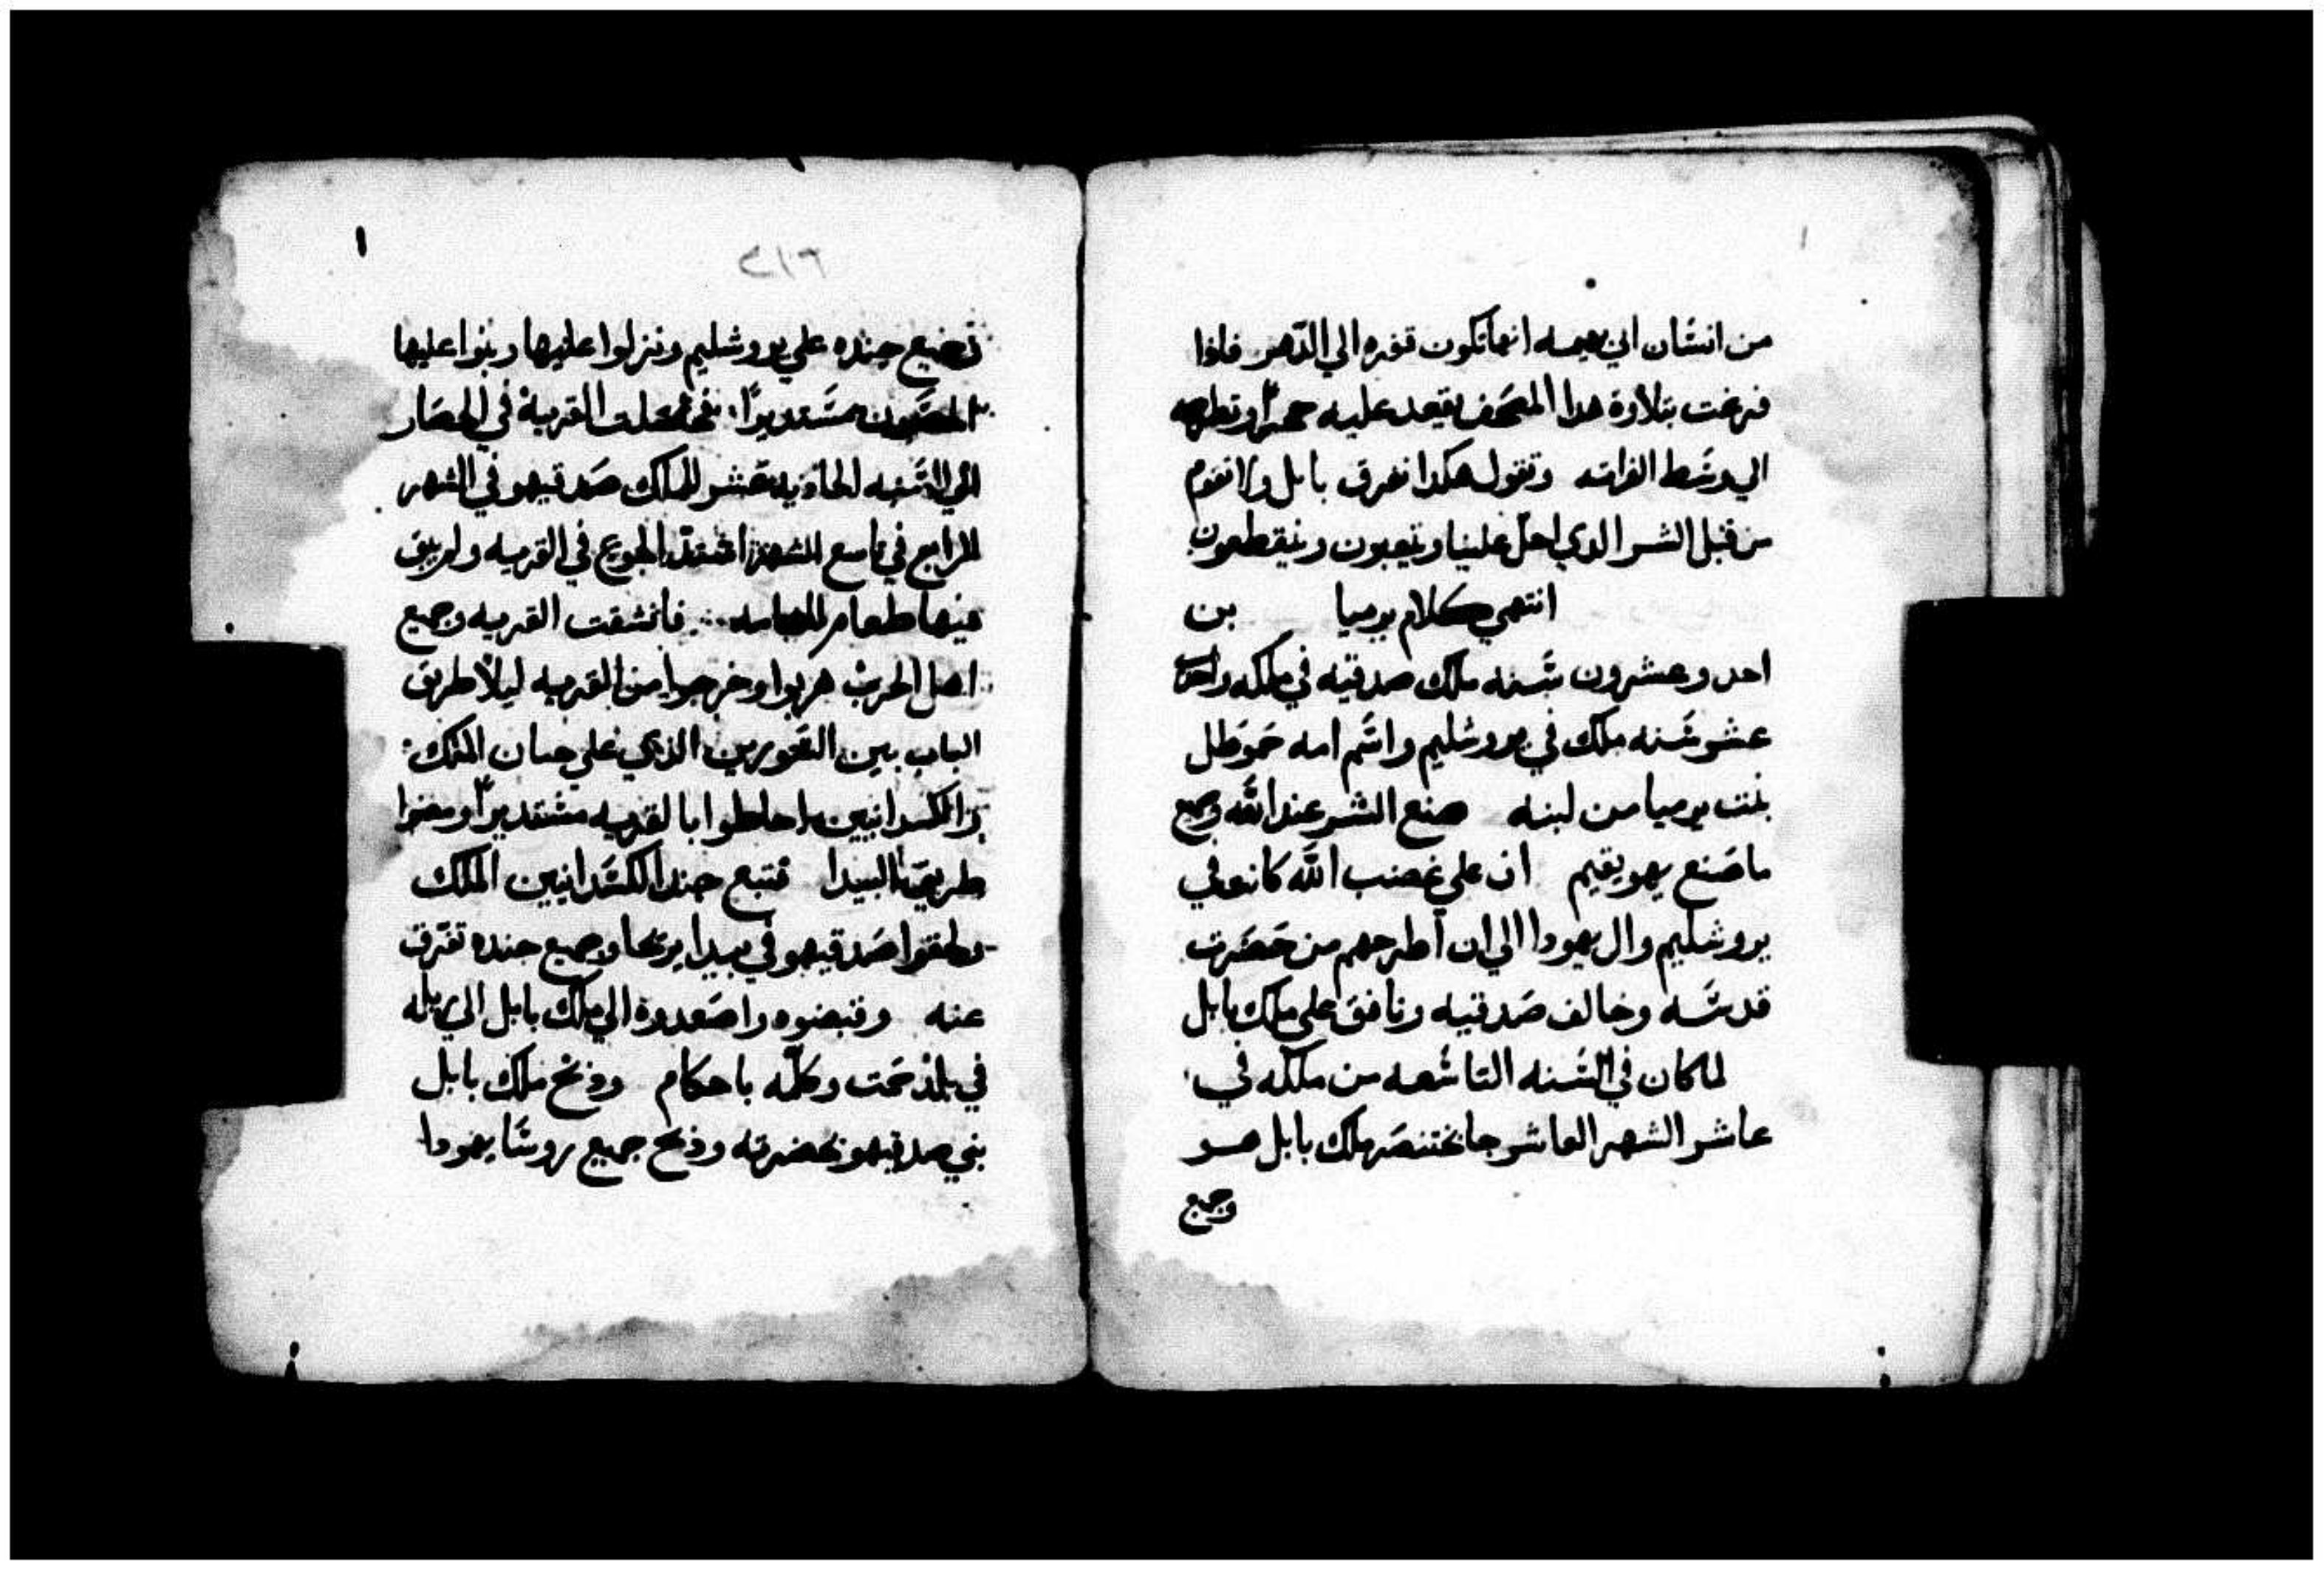 من انسان الي بهيمه انها تكون قفره الي الدهر فاذا
فرغت بتلاوة هدا المصحف تعقد عليه حجرًا وتطرحه
الي وسط الفراته وتقول هكدا تغرق بابل ولا تقوم
من قبل الشر الدي احل علينا ويتعبون وينقطعون
انتهي كلام يرميا بن
احد وعشرون سنه ملك صدقيه في ملكه واحد
عشر سنه ملك في يروشليم واسم امه حموطل
بنت يرميا من لبنه صنع الشر عند الله وجميع
ما صنع يهويقيم ان علي غضب الله كانو في
يروشليم وال يهودا الي ان اطرحهم من حضرت
قدسه وخالف صدقيه ونافق علي ملك بابل
لما كان في السنه التاسعه من ملكه في
عاشر الشهر العاشر جا بختنصر ملك بابل هو
وجميع
٢١٦
جميع جنده علي يروشليم ونزلوا عليها وبنوا عليها
الحصون مستديرًا القرية في الحصار
الي السنه الحاديه عشر للملك صدقيهو في الشهر
الرابع في تاسع الشهر اشتد الجوع في القريه ولم يبق
فيها طعام للعامه فانشقت القريه وجميع
اهل الحرب هربوا وخرجوا من القريه ليلًا طريق
الباب بين السورين الذي علي جنان الملك
والكسدانيين احاطوا بالقريه مستديرًا ومضوا
طريق البيدا فتبع جند الكسدانيين الملك
ولحقوا صدقيهو في بيدا يريحا وجميع جنده تفرق
عنه وقبضوه واصعدوه الي ملك بابل الي ربله
في بلد حمت وكلمه باحكام وذبح ملك بابل
بني صدقيهو بحضرته وذبح جميع روسا يهودا